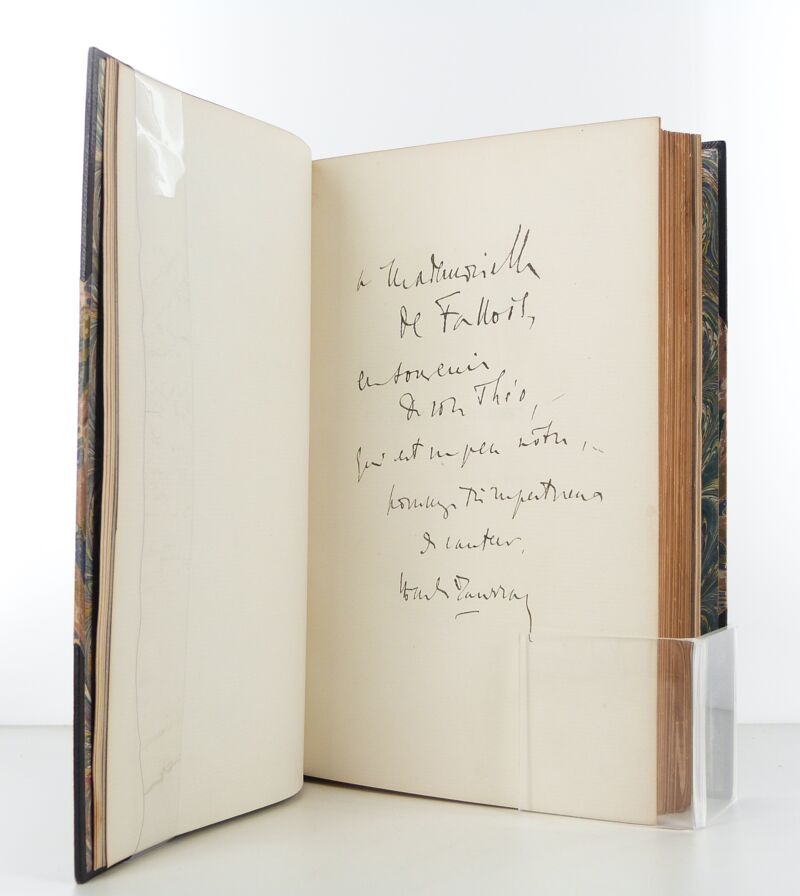 a Mademoiselle
de Fallois,
en souvenir
de son Théo,
qui est un peu nôtre,
hommage très respectueux
de l'auteur,